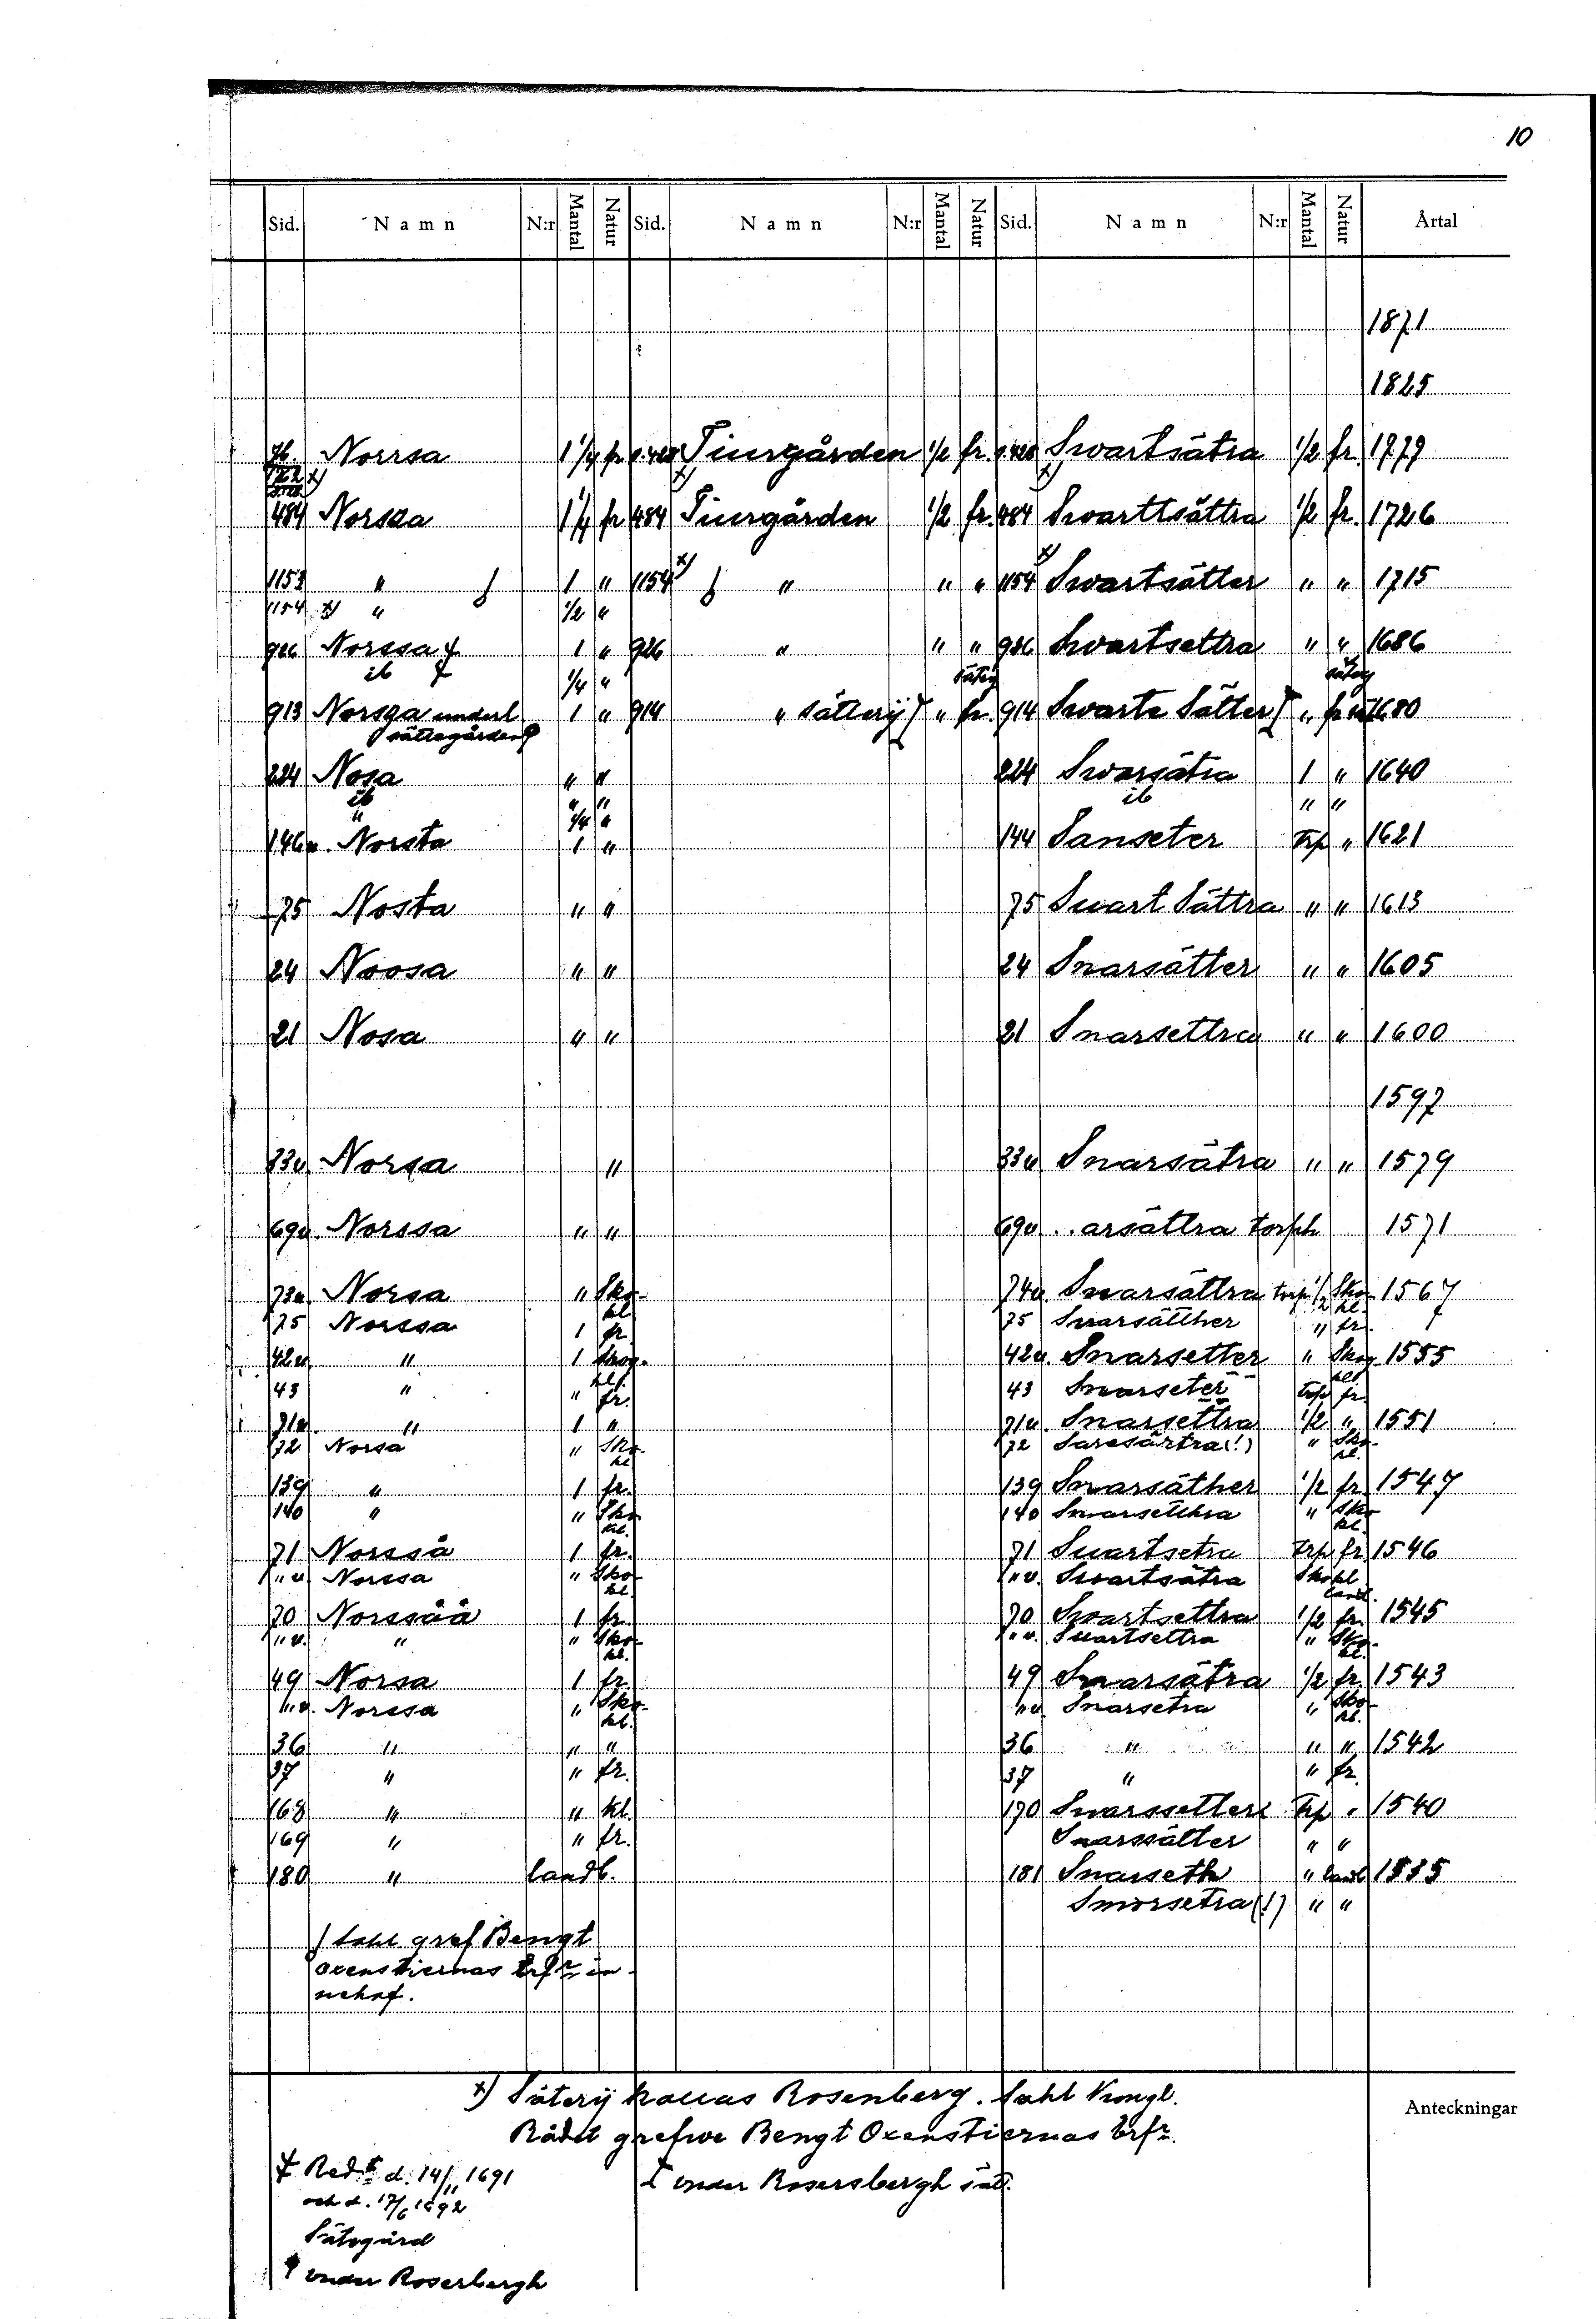 10
Sid. Namn N:r Mantal Natur Sid. Namn N:r Mantal Natur Sid. Namn N:r Mantal Natur Årtal
1871
1825
Norrsa 1 1/4 fr Tiurgården 1/2 fr. Swartsätra 1/2 fr. 1779
484 Norsaa 1 1/4 fr 484 Tiurgården 1/2 fr. 484 Swarttsättra 1/2 fr. 1726
1153 " 1 " 1154 x) " " " 1154 x) Swartsätter " " 1715
1154 x) " 1/2 "
926 Norssa 1 " 926 " " " 926 Swartsettra " " 1686
ib 1/4 "
913 Norsaa underl. 1 " 914 " sätterij " fr. 914 Swarte Sätter " fr 1680
sättegården
224 Nosa " " 224 Swarsätra 1 " 1640
ib " " ib " "
" 1/4 "
146v. Norsta 1 " 144 Sanseter trp " 1621
75 Nosta " " 75 Suart Sättra " " 1613
24 Noosa " " 24 Snarsätter " " 1605
21 Nosa " " 21 Snarsettra " " 1600
1597
33v Norsa " 33v Snarsätra " " 1579
69v. Norssa " " 69v ..arsättra torp 1571
73v Norsa " Sko- 74v Swarsättra torp 1/2 Sko- 1567
kl kl.
75 Norssa 1 fr 75 Snarsätther " fr.
42v " 1 Skog. 42v. Snarsetter " Skog 1555
43 " " fr. 43 Snarseter trp fr.
71v. " 1 " 71v. Snarsettra 1/2 " 1551
72 Norsa " Sko- 72 Saresärtra(!) " Sko-
kl kl.
139 " 1 fr. 139 Snarsäther 1/2 fr. 1547
140 " " Sko- 140 Snarsetthra " Sko-
kl. kl.
71 Norsså 1 fr. 71 Suartsetra trp fr. 1546
" v. Norssa " Sko- " v. Swartsätra Skokl
kl. landb.
70 Norssåå 1 fr. 70 Swartsettra 1/2 fr. 1545
" v. " " Sko- " v. Suartsettra " Sko-
kl. kl.
49 Norsa 1 fr. 49 Snarsätra 1/2 fr. 1543
" v. Norssa " Sko- " v. Snarsetra " Sko-
kl. kl.
36 " " " 36 " " " 1542
37 " " fr. 37 " " fr.
168 " " kl. 170 Snarssetter trp " 1540
169 " " fr. Snarssätter " "
180 " landb. 181 Snarseth " landb 1535
Smorsetra(!) " "
/ Sahl. gref Bengt
Oxenstiernas Erfr: in
nehaf.
x) Säterij kallas Rosenberg. Sahl Kongl.
Rådet grefwe Bengt Oxenstiernas Erfr.
Anteckningar
Redt d. 14/11 1691
och d. 17/6 1692
Sätegård
under Rosersbergh sätt.
under Roserbergh